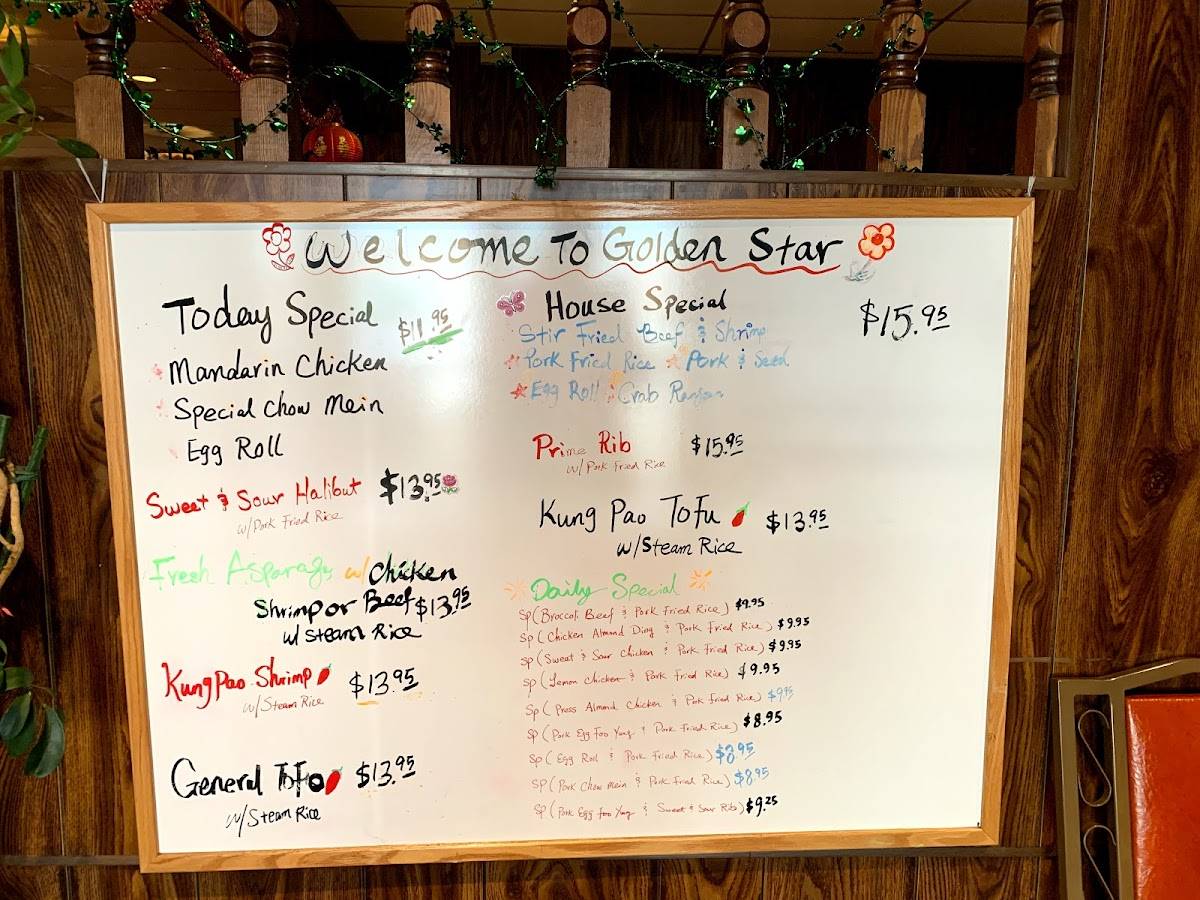 Welcome To Golden Star
Today Special $11.95
Mandarin Chicken
Special Chow Mein
Egg Roll
Sweet & Sour Halibut $13.95
w/Pork Fried Rice
Fresh Asparags w/ Chicken
Shrimp or Beef $13.95
w/ Steam Rice
Kung Pao Shrimp $13.95
w/Steam Rice
General ToFo $13.95
w/Steam Rice
House Special $15.95
Stir Fried Beef & Shrimp
Pork Fried Rice Pork & Seed
Egg Roll Crab
Prime Rib $15.95
w/ Pork Fried Rice
Kung Pao ToFu $13.95
w/Steam Rice
Daily Special
SP (Broccoli Beef & Pork Fried Rice) $9.95
SP (Chicken Almond Ding & Pork Fried Rice) $9.95
SP (Sweet & Sour Chicken & Pork Fried Rice) $9.95
SP (Lemon Chicken & Pork Fried Rice) $9.95
SP (Press Almond Chicken & Pork Fried Rice) $9.95
SP (Pork Egg Foo Yung & Pork Fried Rice) $8.95
SP (Egg Roll & Pork Fried Rice) $8.95
SP (Pork Chow Mein & Pork Fried Rice) $8.95
SP (Pork Egg Foo Yung & Sweet & Sour Ribs) $9.25